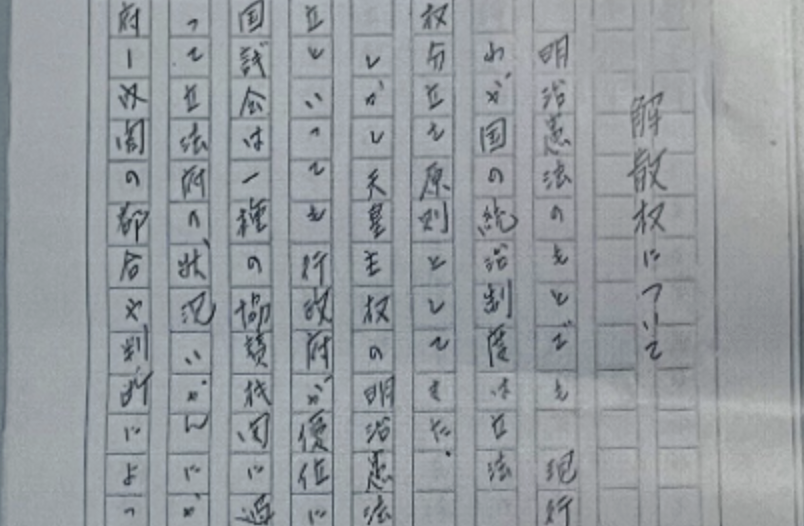 解散权について
明治憲法のもとでも 現行
わが国の統治制度は立法
权分立を原則として来た。
しかし天皇主权の明治憲法
立といっても行政府が優位に
国議会は一種の協賛机関に過
って立法府の状況いかんにか
府―内閣の都合や判断によっ